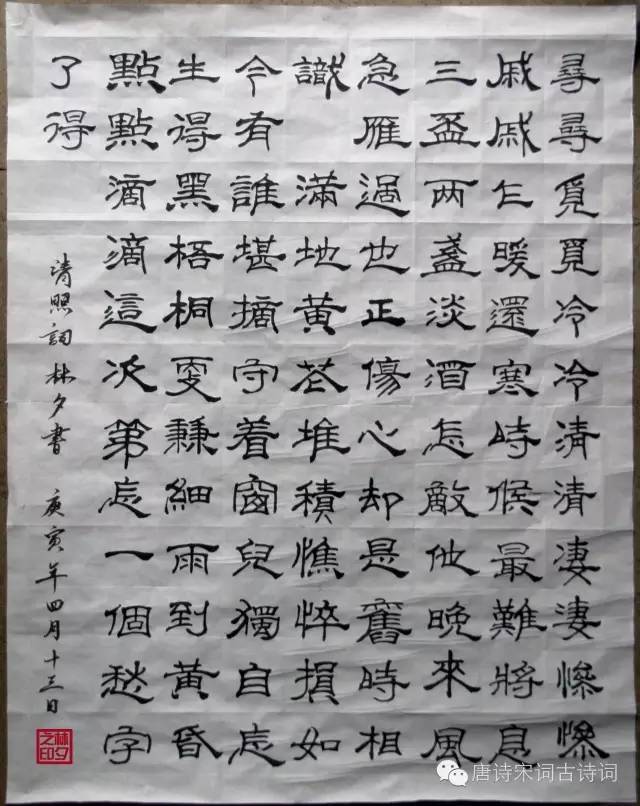 尋尋覓覓冷冷清清凄凄慘慘
戚戚乍暖還寒時候最難將息
三盃两盞淡酒怎敵他晚來風
急雁過也正傷心却是舊時相
識 滿地黃花堆積憔悴損如
今有誰堪摘守着窗兒獨自怎
生得黑梧桐更兼細雨到黃昏
點點滴滴這次第怎一個愁字
了得
清照詞 林夕書 庚寅年四月十三日
林夕之印
唐诗宋词古诗词